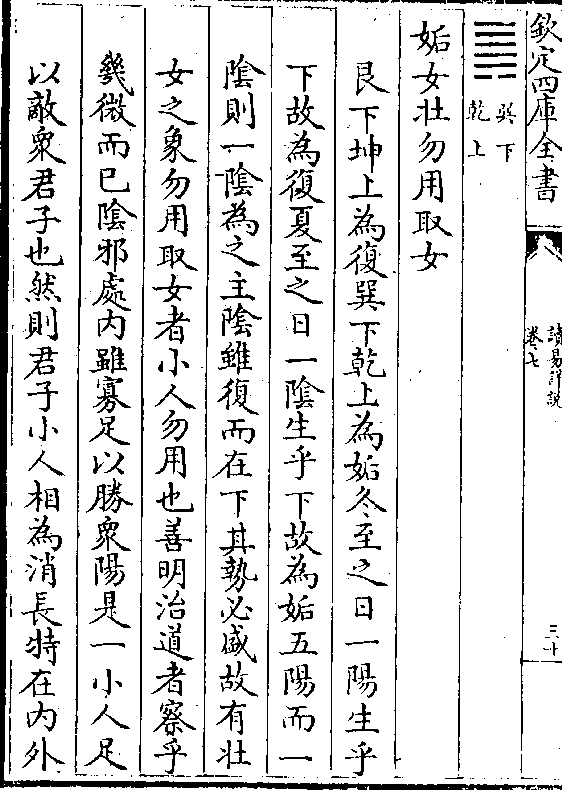 欽定四庫全書
讀易詳說
卷七
三十
䷫
巽下
乾上
姤女壯勿用取女
艮下坤上為復巽下乾上為姤冬至之日一陽生乎
下故為復夏至之日一隂生乎下故為姤五陽而一
隂則一隂為之主隂雖復而在下其勢必盛故有壯
女之象勿用取女者小人勿用也善明治道者察乎
幾微而已隂邪處内雖寡足以勝衆陽是一小人足
以敵衆君子也然則君子小人相為消長特在内外